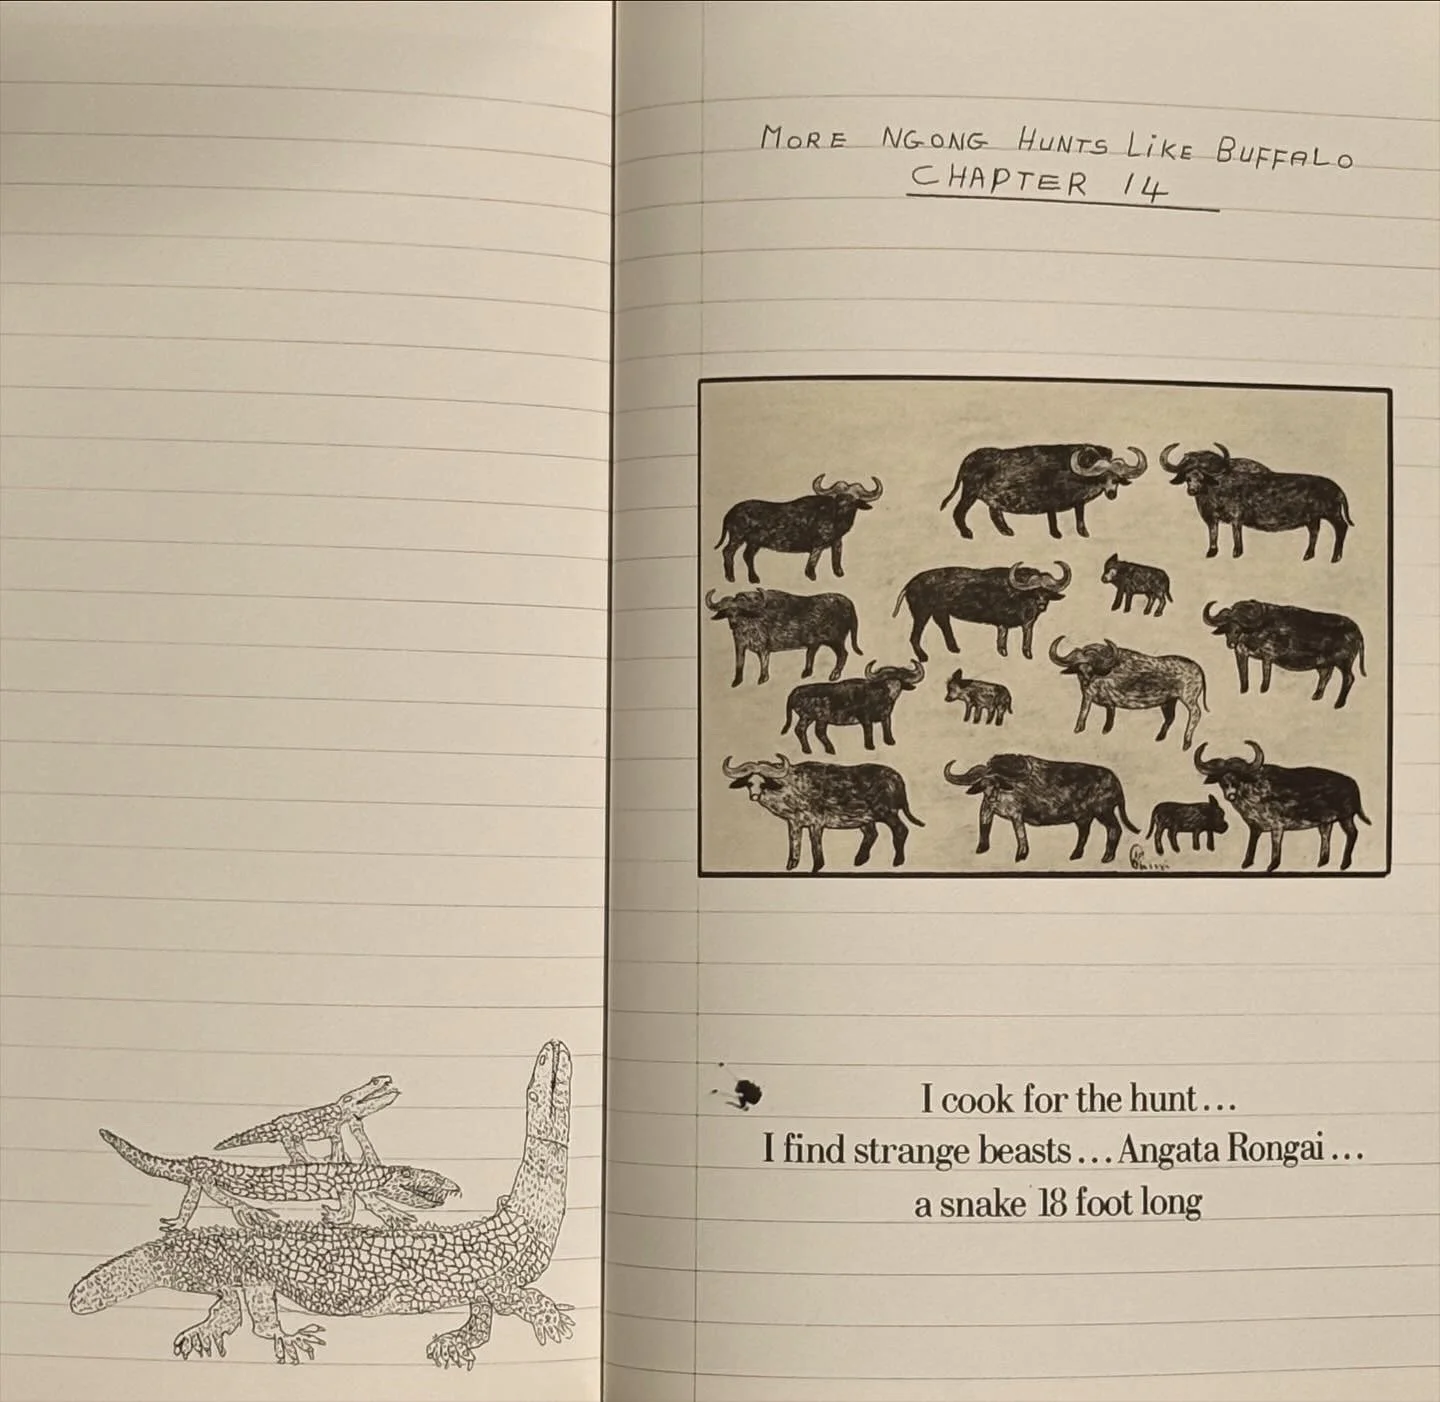 MORE NGONG HUNTS LiKE BUFFALO
CHAPTER 14
I cook for the hunt...
I find strange beasts... Angata Rongai...
a snake 18 foot long